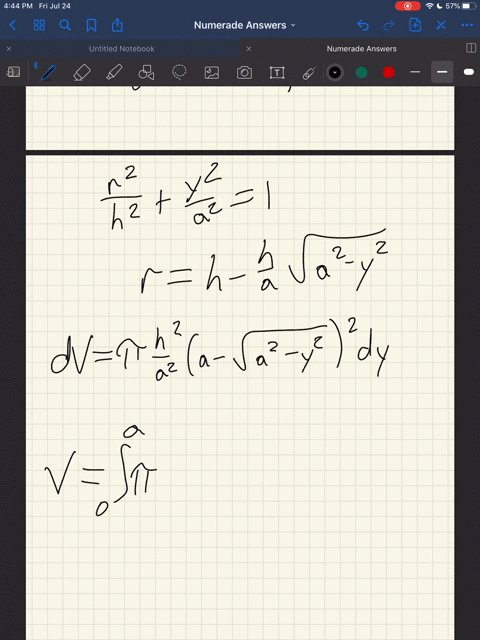 4:44 PM Fri Jul 24 57%
Numerade Answers
Untitled Notebook Numerade Answers
r²/h² + y²/a² = 1
r = h - h/a √(a² - y²)
dV = π h²/a² (a - √(a² - y²))² dy
V = ∫₀ᵃ π